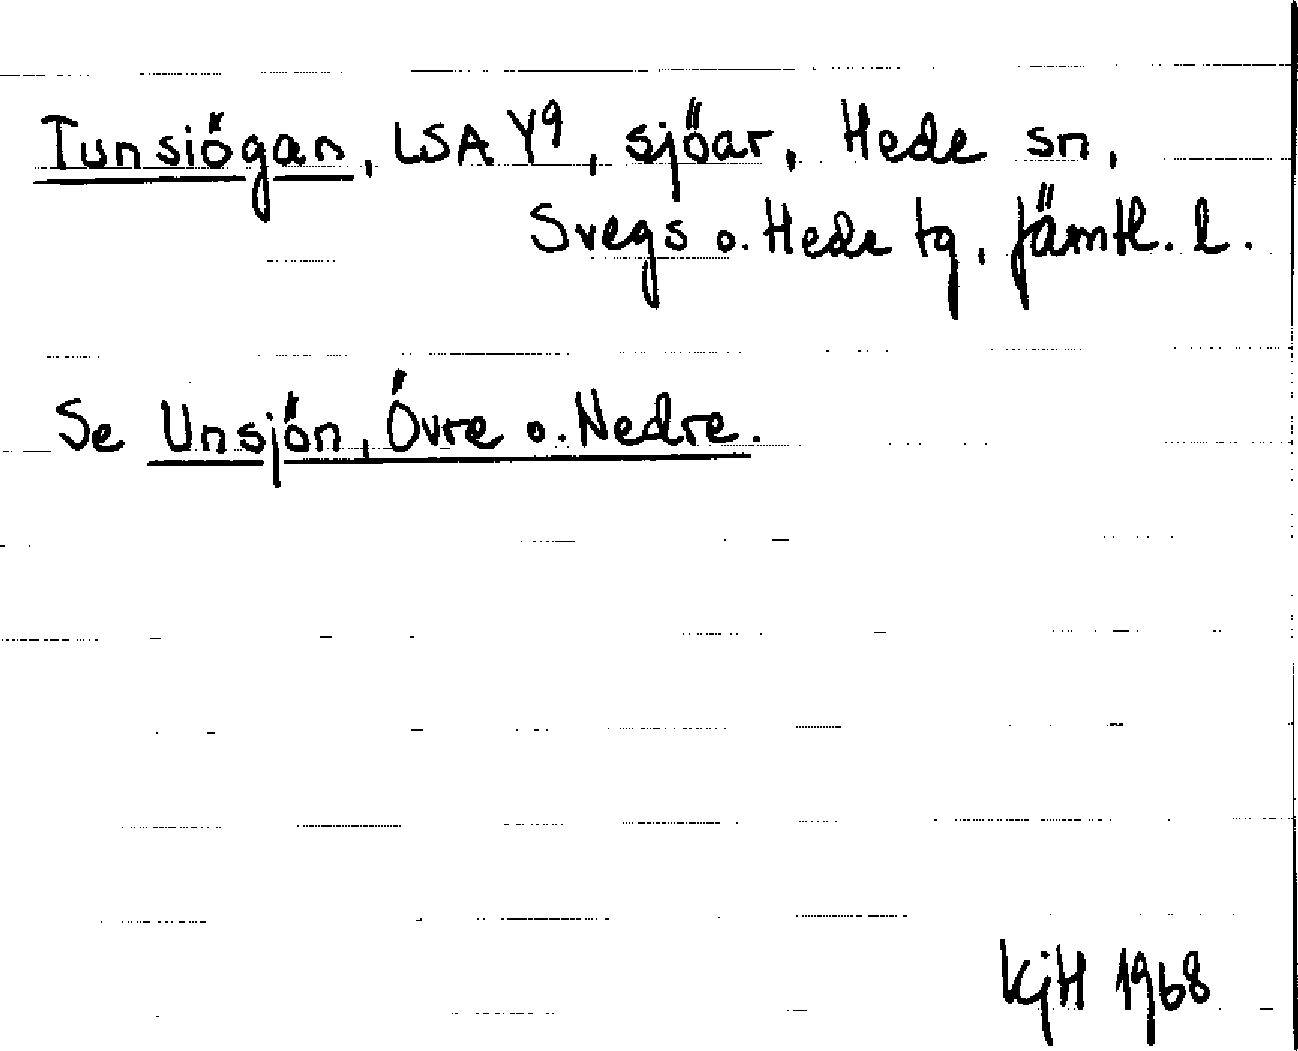 Tunsiögan, LSA Y9, sjöar, Hede sn,
Svegs o. Hede tg, Jämtl. l.
Se Unsjön, Övre o. Nedre.
KjH 1968